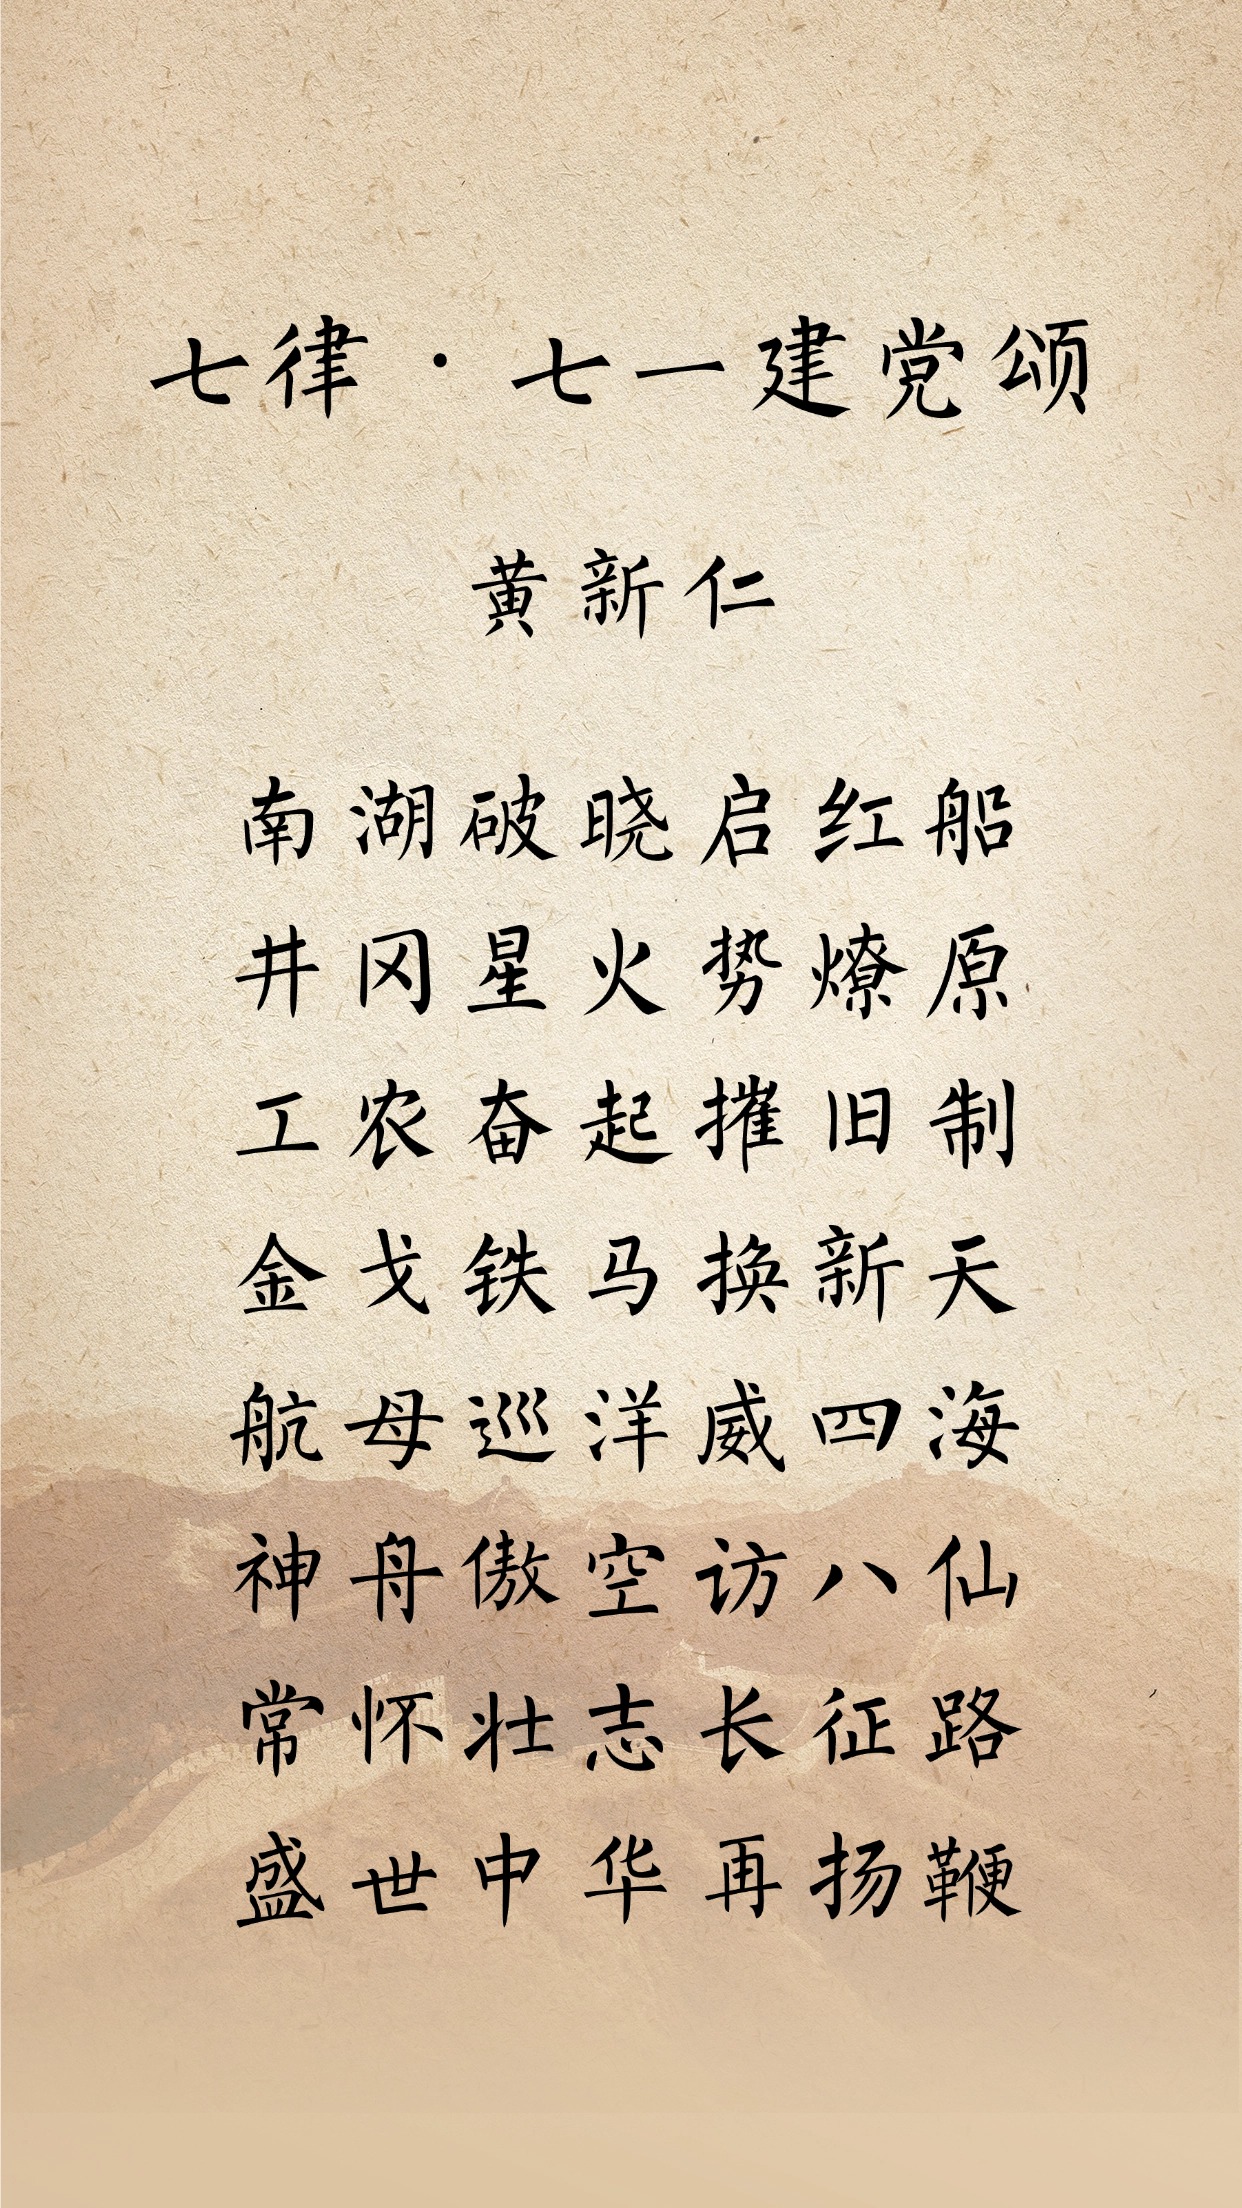 七律·七一建党颂
黄新仁
南湖破晓启红船
井冈星火势燎原
工农奋起摧旧制
金戈铁马换新天
航母巡洋威四海
神舟傲空访八仙
常怀壮志长征路
盛世中华再扬鞭